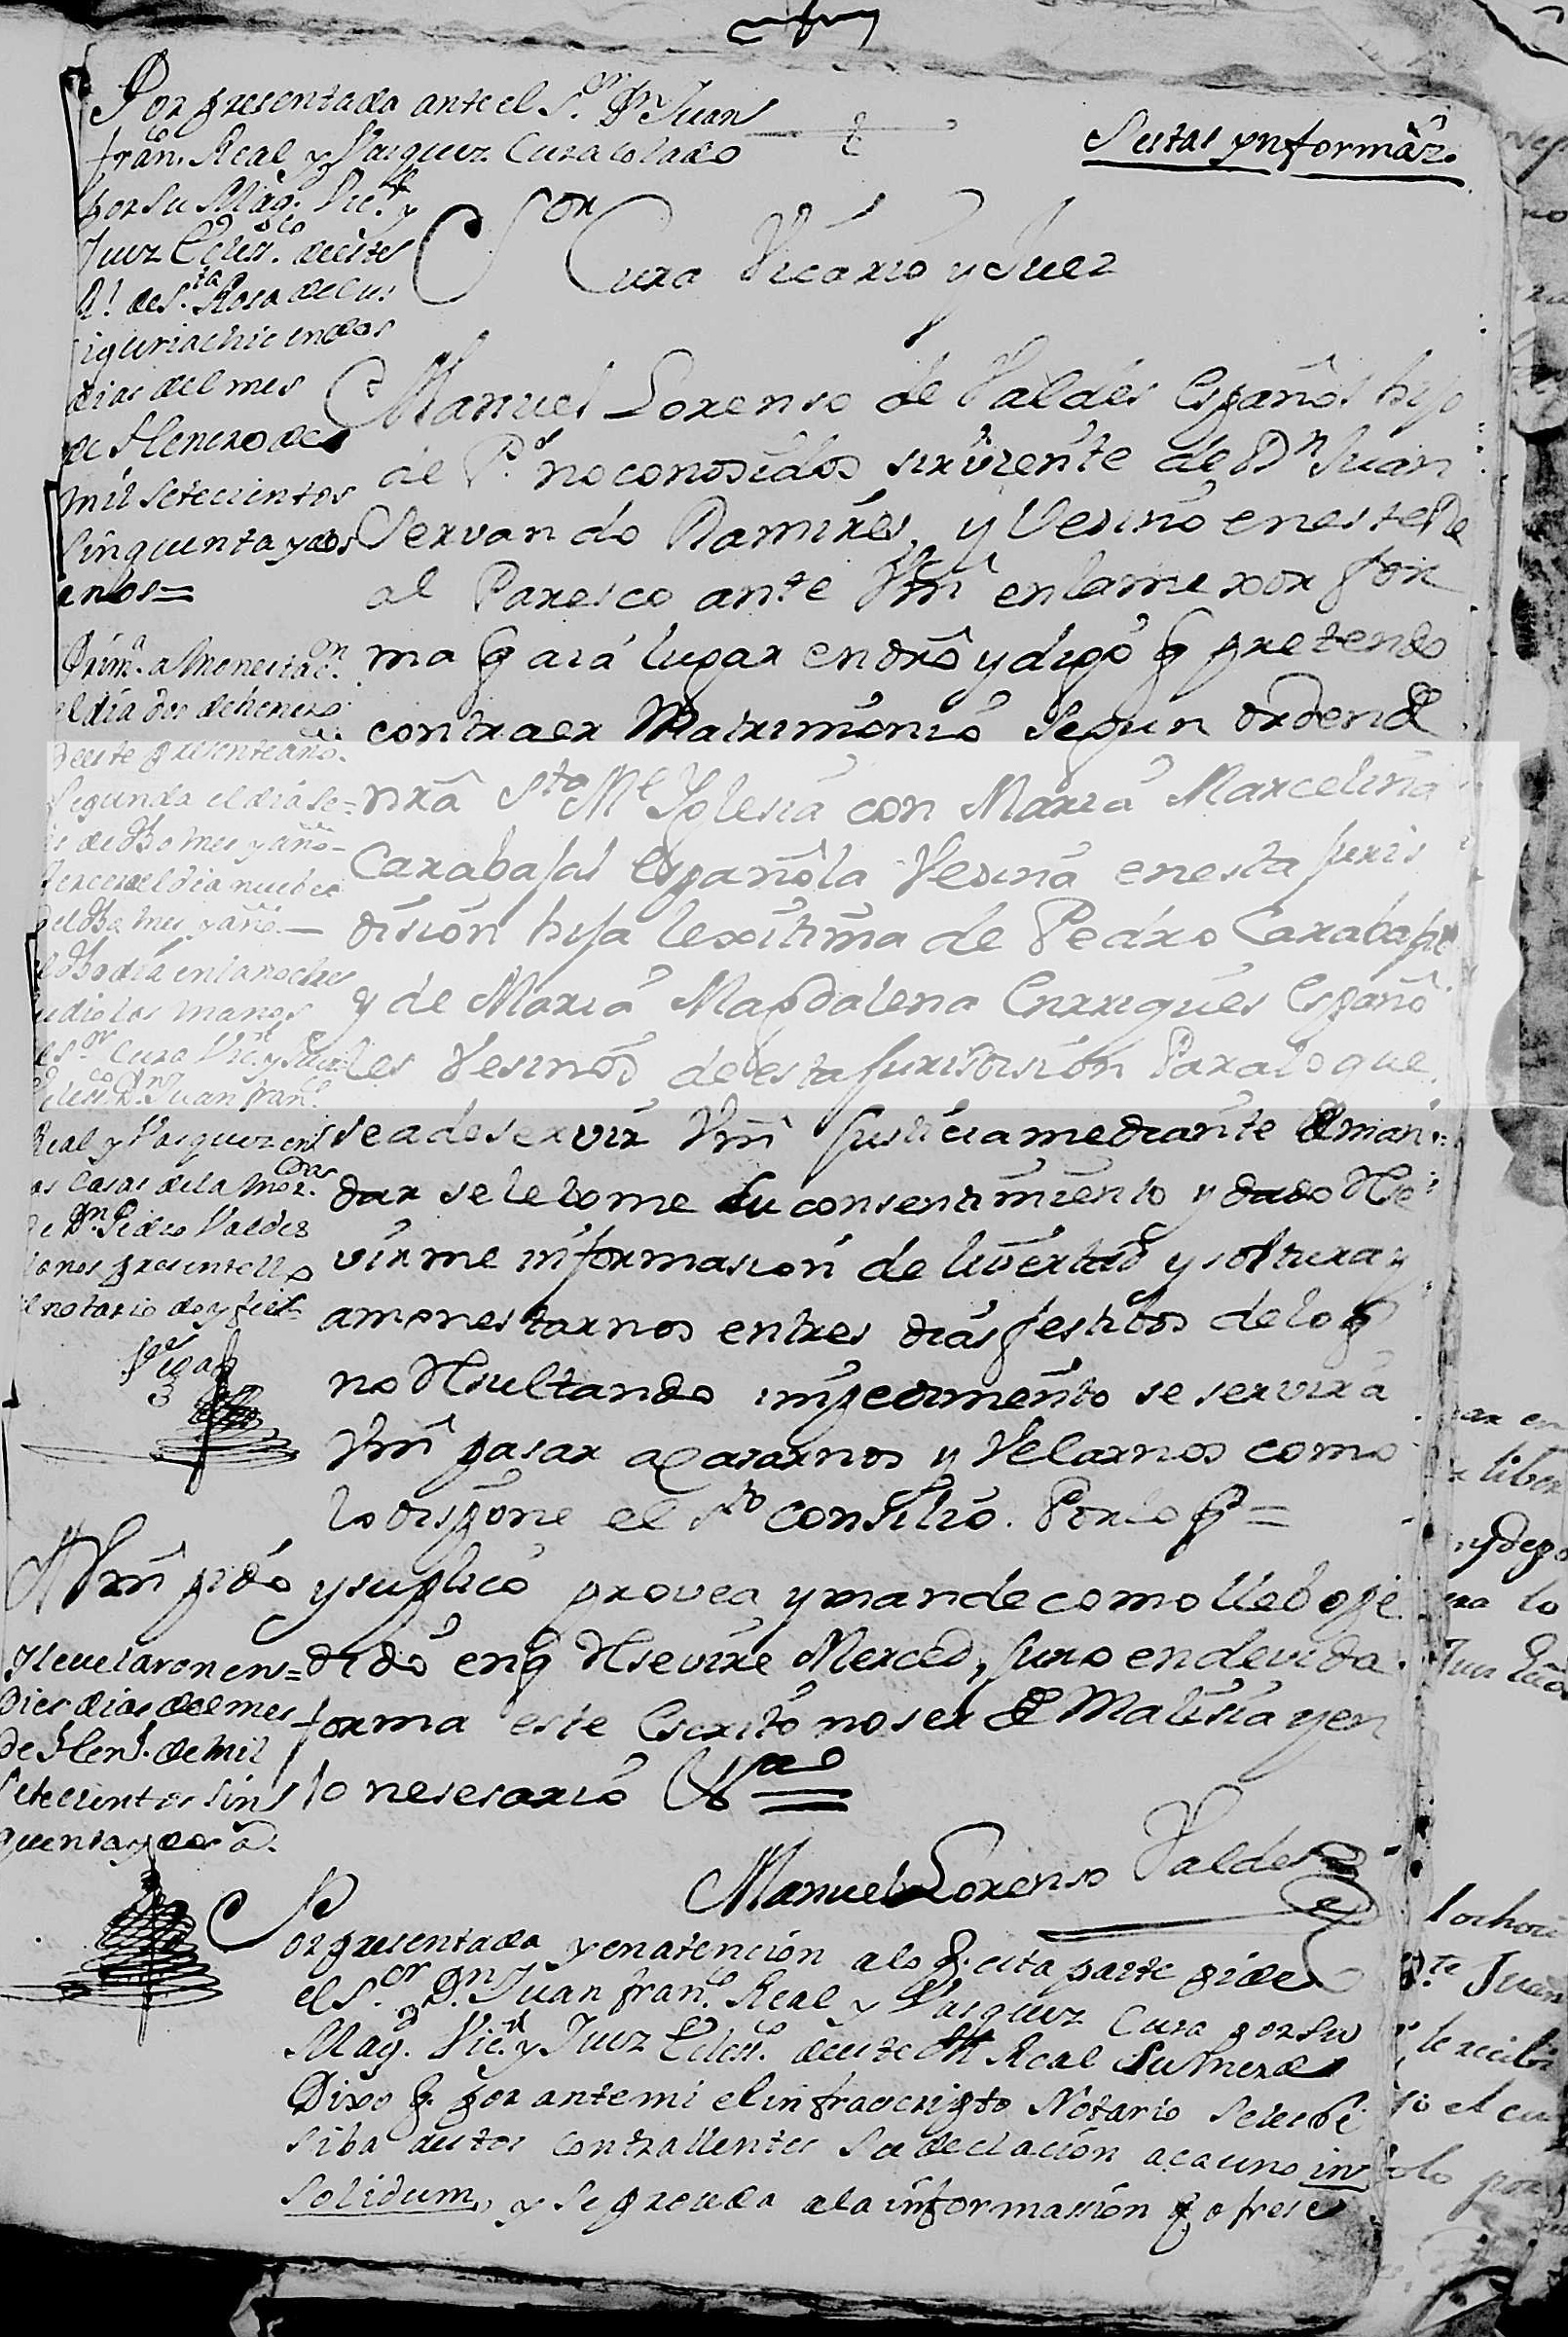 Por presentada ante el S.or Dn Juan
fran.co Real y Vasquez Cura colado
por su Mag.d Vic.o y
Juez Ecless.co de este
R.l de S.ta Rosa de Cu
siguriachic en dos
dias del mes
de Henero de
mil setecientos
sinquenta y dos
años=
Prim.a amonestac.on
el dia dos de henero
de este presente año.
Segunda el dia se=
is de dho mes y año–
Tercera el dia nueve
del dho mes y año.–
el dho dia en la noche
se dio las manos
el S.or Cura Vic.o y Juez
Ecless.co Dn Juan fran.co
Real y Vasquez en
las casas de la mor.
de Dn Pedro Valdes
el notario doy fee
Y se velaron en=
Dies dias del mes
de Hen.o de mil
setecientos sin
quenta y dos a.
Sestas ynformaz.
S.or Cura Vicario y Juez
Manuel Lorenso de Valdes español hijo
de P.s no conosidos sirviente de Dn Juan
Servando Ramires, y Vesino en este Re
al Paresco ante Vm en la mexor for
ma q aiá lugar en dro y digo q pretendo
contraer Matrimonio segun orden de
nrâ S.ta M.e Yglesia con Maria Marcelina
Carabajal española Vesina en esta juris
disión hija lexitima de Pedro Carabajal
y de Maria Magdalena Enrriques Españo
les Vesinos de esta jurisdisión Para lo que
se a de servir Vm justicia mediante el man
dar se le tome su consentimiento y dado Re
virme informasion de livertad y soltura y
amonestarnos en tres dias festibos de lo q
no Resultando impedimento se servira
Vm pasar a Casarnos y Velarnos como
lo dispone el s.to consilio. Por lo q=
A Vm pido y suplico provea y mande como llebo pe
dido en q Resevire Merced, juro en devida
forma este Escrito no ser de Malisia y en
lo nesesario &.a
Manuel Lorenso Valdes
Por presentada y en atención a lo q. esta parte pide
el S.or Dn Juan fran.co Real y Vasquez Cura por su
Mag.d Vic.o y Juez Ecless.co de este Real su merced
Dixo q. por ante mi el infraescripto Notario se resi
siba a estos contrallentes su declación a cauno in
solidum, y se proceda a la informasión q ofrese